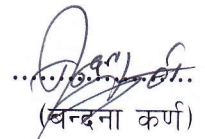 (बन्दना कर्ण)